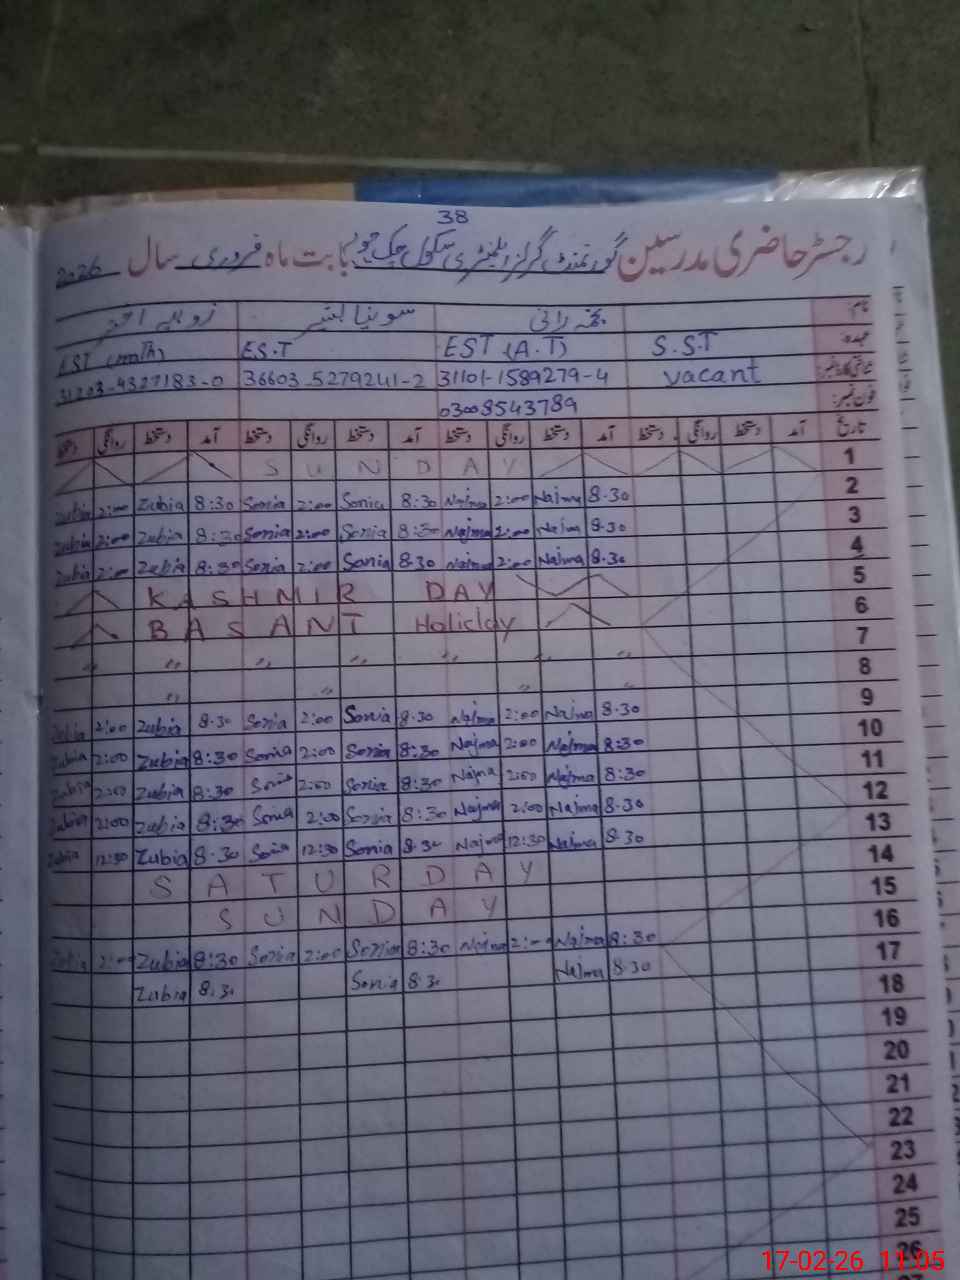 38
رجسٹر حاضری مدرسین گورنمنٹ گرلز ایلیمنٹری سکول چک بابت ماہ فروری سال 2026
نام: نجمہ رانی سونیا زوبیہ
عہدہ: S.S.T EST (A.T) E.S.T EST (math)
شناختی کارڈ نمبر: vacant 31101-1589279-4 36603-5279241-2 31203-4327183-0
فون نمبر: 03008543789
تاریخ آمد دستخط روانگی دستخط آمد دستخط روانگی دستخط آمد دستخط روانگی دستخط آمد دستخط روانگی دستخط
SUNDAY 1
Zubia 2:00 Zubia 8:30 Sonia 2:00 Sonia 8:30 Najma 2:00 Najma 8:30 2
Zubia 2:00 Zubia 8:30 Sonia 2:00 Sonia 8:30 Najma 2:00 Najma 8:30 3
Zubia 2:00 Zubia 8:30 Sonia 2:00 Sonia 8:30 Najma 2:00 Najma 8:30 4
KASHMIR DAY 5
BASANT Holiday 6
〃 〃 〃 〃 〃 〃 〃 7
〃 〃 〃 〃 8
Zubia 2:00 Zubia 8:30 Sonia 2:00 Sonia 8:30 Najma 2:00 Najma 8:30 9
Zubia 2:00 Zubia 8:30 Sonia 2:00 Sonia 8:30 Najma 2:00 Najma 8:30 10
Zubia 2:00 Zubia 8:30 Sonia 2:00 Sonia 8:30 Najma 2:00 Najma 8:30 11
Zubia 2:00 Zubia 8:30 Sonia 2:00 Sonia 8:30 Najma 2:00 Najma 8:30 12
Zubia 12:30 Zubia 8:30 Sonia 12:30 Sonia 8:30 Najma 12:30 Najma 8:30 13
SATURDAY 14
SUNDAY 15
Zubia 2:00 Zubia 8:30 Sonia 2:00 Sonia 8:30 Najma 2:00 Najma 8:30 16
Zubia 8:30 Sonia 8:30 Najma 8:30 17
18
19
20
21
22
23
24
25
26
17-02-26 11:05